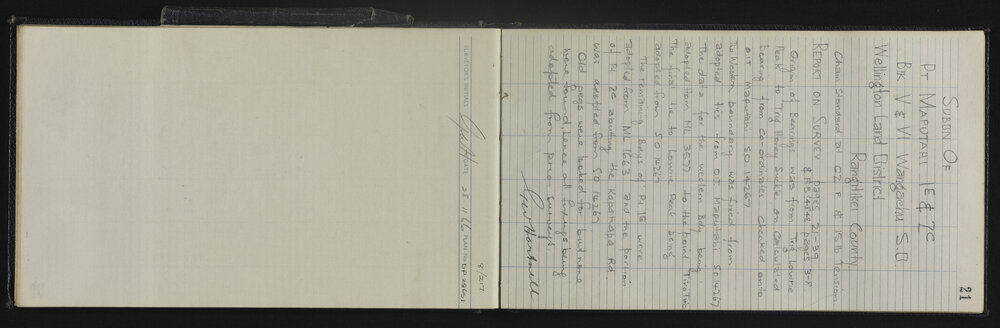 21
SUBDN OF
Pt MAPUTAHI 1E & 2C
Blk V & VI Wangaehu S.D.
Wellington Land District
Rangitikei County.
Chain Standard at 62°F & 15 lb Tension
REPORT ON SURVEY pages 21-39
& F.B. pages 3-8
Origin of Bearings was from Trig Lowrie
Peak to Trig Honey Suckle on Calculated
bearing from Co-ordinates checked onto
OIT Maputahi SO 14267.
The Western boundary was fixed from
adopted ties from OIT Maputahi SO 14267
The data for the western Bdy being
adopted from ML 3577 to the point
The final tie to Lowrie Peak being
adopted from SO 14267
The remaining Bdys of Pt 1E were
adopted from ML 1663 and the portion
of Pt 2C abutting the Kapakapa Rd
was adopted from SO 14267.
Old pegs were looked for but none
were found, hence all bdys being
adopted from prior surveys.
Geo Hartnell
8/217
SURVEYOR'S INITIALS GwH DATE 28.11.66 PLAN No. DP 28651